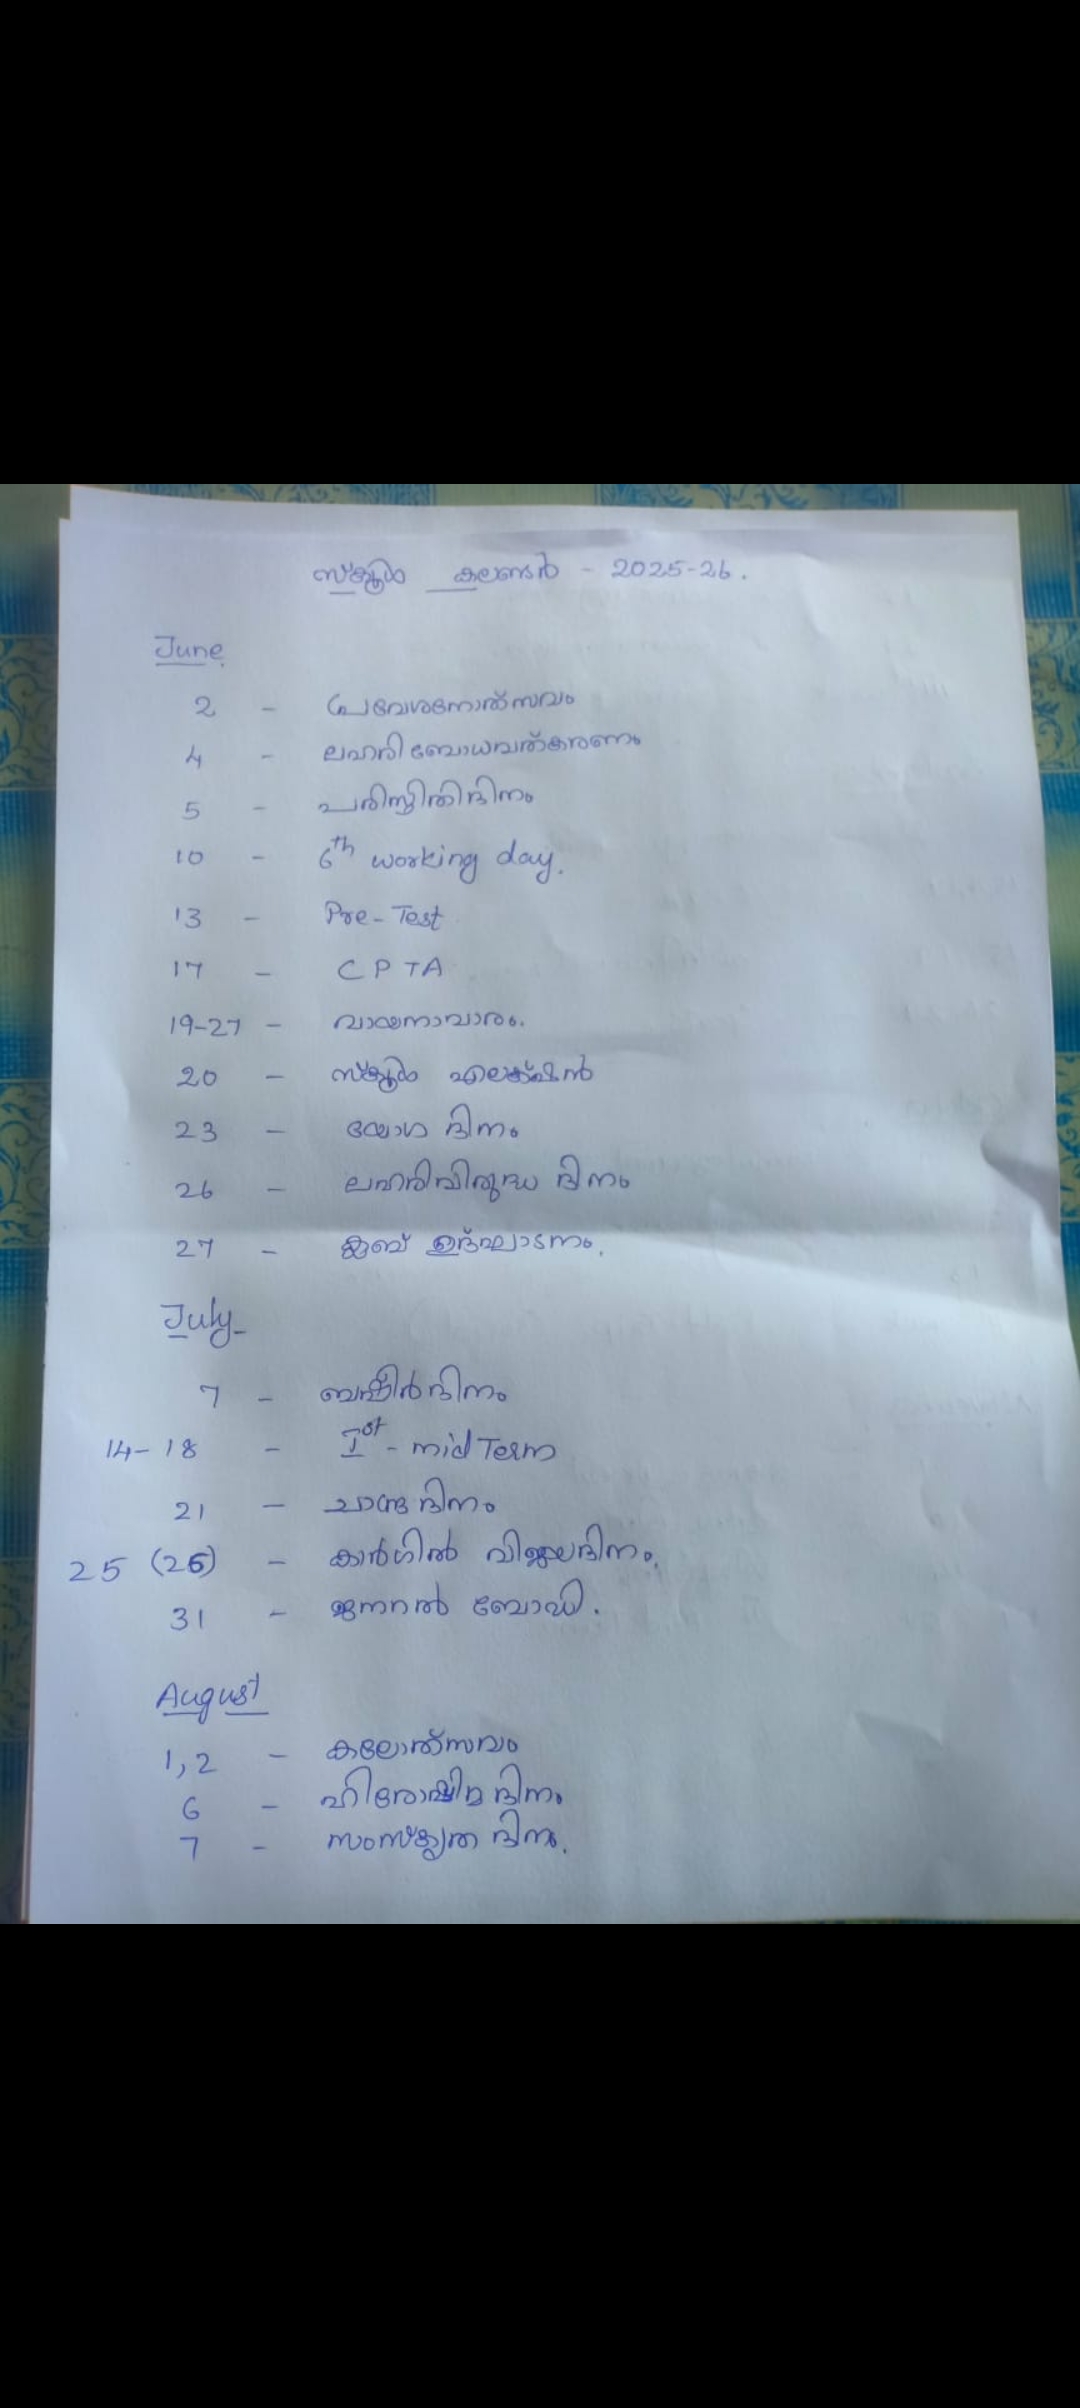 സ്കൂൾ കലണ്ടർ - 2025-26.
June
2 - പ്രവേശനോത്സവം
4 - ലഹരി ബോധവത്കരണം
5 - പരിസ്ഥിതിദിനം
10 - 6th working day.
13 - Pre-Test
17 - CPTA
19-27 - വായനാവാരം.
20 - സ്കൂൾ എലക്ഷൻ
23 - യോഗ ദിനം
26 - ലഹരിവിരുദ്ധ ദിനം
27 - ക്ലബ് ഉദ്ഘാടനം.
July
7 - ബഷീർദിനം
14-18 - Ist - mid Term
21 - ചാന്ദ്രദിനം
25 (26) - കാർഗിൽ വിജയദിനം.
31 - ജനറൽ ബോഡി.
August
1,2 - കലോത്സവം
6 - ഹിരോഷിമ ദിനം
7 - സംസ്കൃത ദിനം.